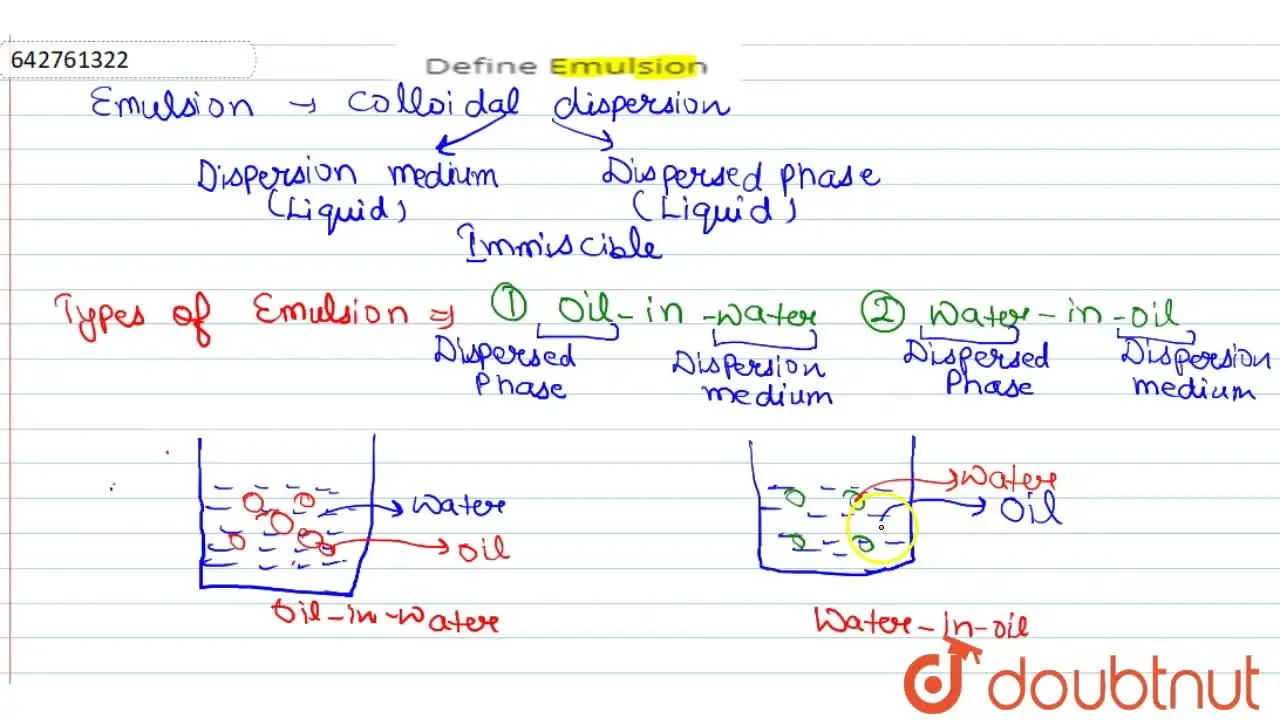 642761322
Define Emulsion
Emulsion → colloidal dispersion
Dispersion medium Dispersed phase
(Liquid) (Liquid)
Immiscible
Types of Emulsion ⇒ ① Oil-in-water ② Water-in-oil
Dispersed Phase Dispersion medium Dispersed Phase Dispersion medium
Water
Oil
Water
Oil
Oil-in-water
Water-in-oil
doubtnut